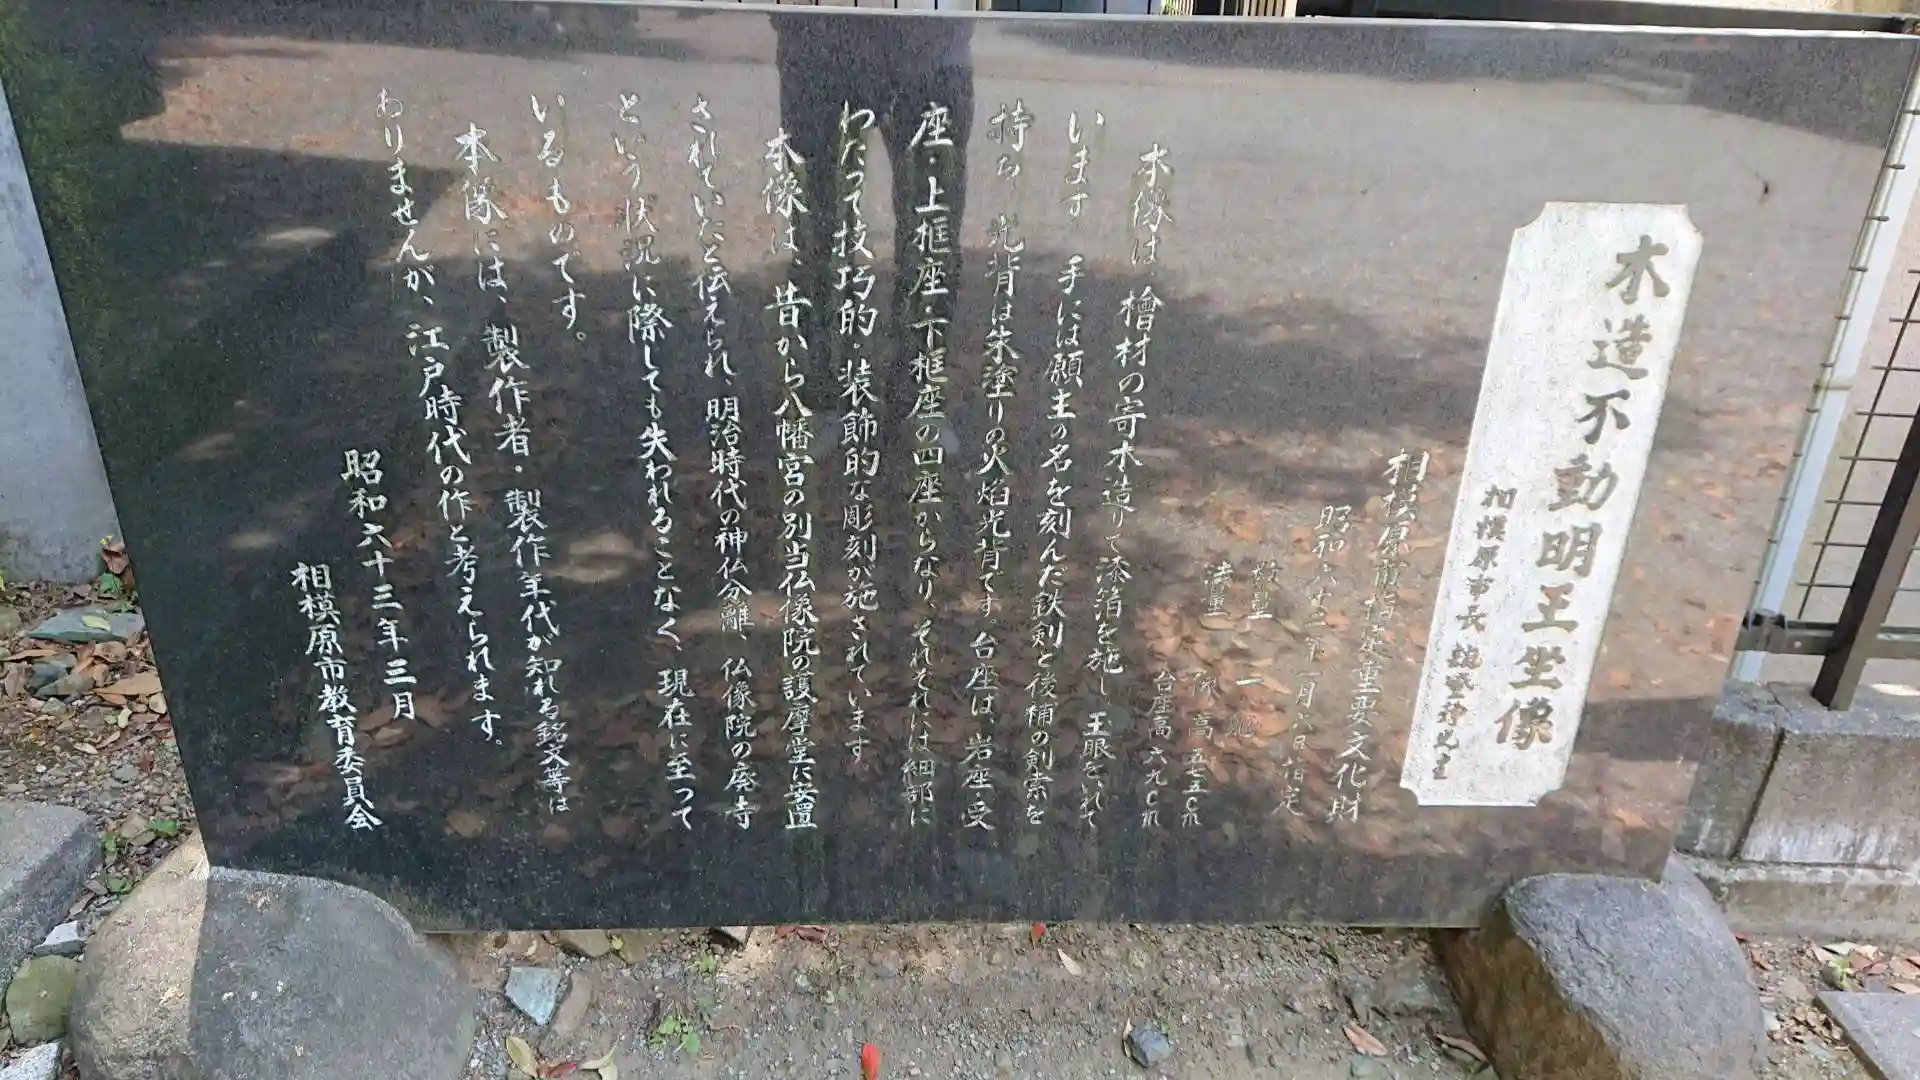 木造不動明王坐像
相模原市長
相模原市指定重要文化財
昭和六十二年
数量 一
法量 像高 五七・五cm
台座高 六九cm
本像は、檜材の寄木造りで漆箔を施し、玉眼をいれて
います。手には願主の名を刻んだ鉄剣と後補の剣索を
持ち、光背は朱塗りの火焔光背です。台座は、岩座・受
座・上框座・下框座の四座からなり、それぞれには細部に
わたって技巧的・装飾的な彫刻が施されています。
本像は、昔から八幡宮の別当仏像院の護摩堂に安置
されていたと伝えられ、明治時代の神仏分離、仏像院の廃寺
という状況に際しても失われることなく、現在に至って
いるものです。
本像には、製作者・製作年代が知れる銘文等は
ありませんが、江戸時代の作と考えられます。
昭和六十三年三月
相模原市教育委員会